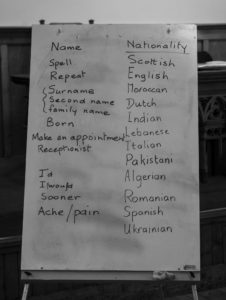 Name
Spell
Repeat
Surname
Second name
family name
Born
Make an appointment
Receptionist
I'd
I would
Sooner
Ache/pain
Nationality
Scottish
English
Moroccan
Dutch
Indian
Lebanese
Italian
Pakistani
Algerian
Romanian
Spanish
Ukrainian